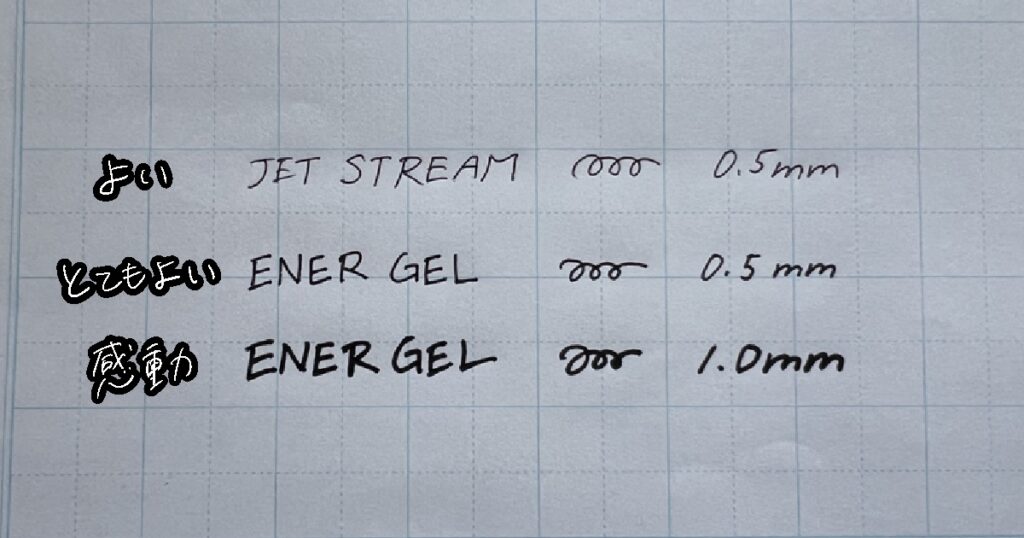 よい JET STREAM 0.5mm
とてもよい ENER GEL 0.5mm
感動 ENER GEL 1.0mm